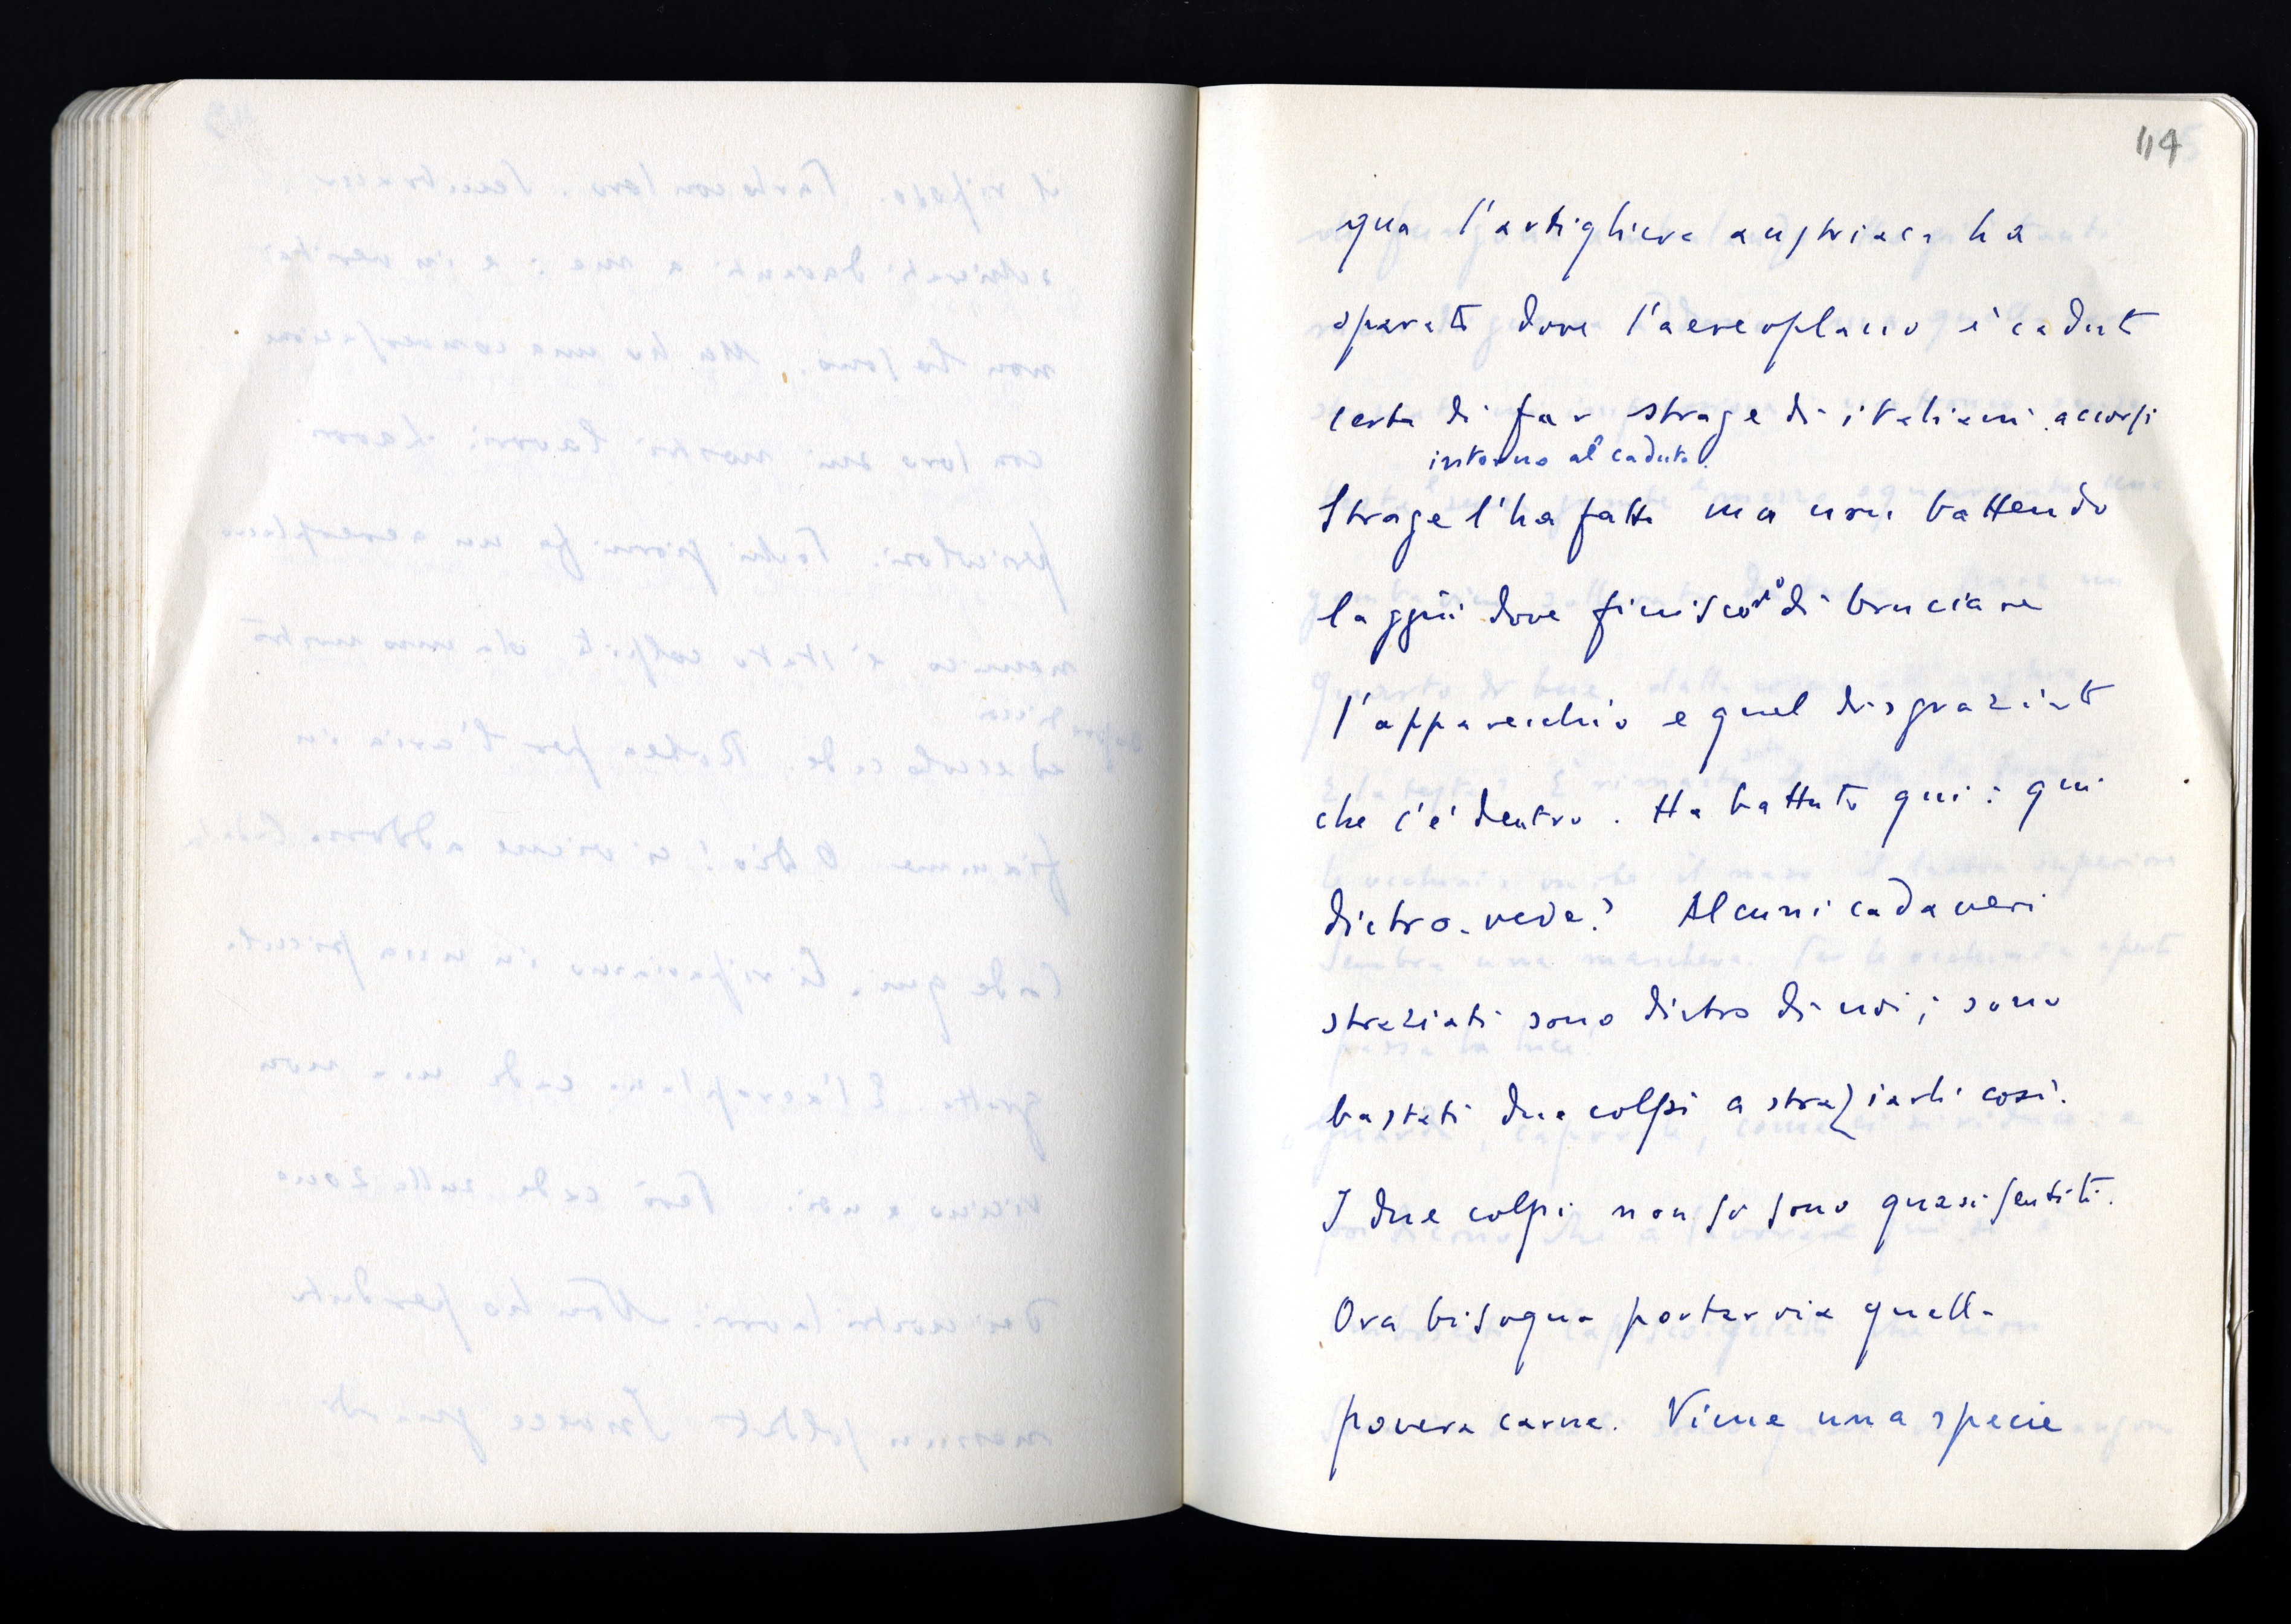 114
qua l'artiglieria austriaca ha
sparato dove l'aereoplano è caduto
certa di far strage di italiani accorsi
intorno al caduto.
Strage l'ha fatta ma non battendo
laggiù dove finisco di bruciare
l'apparecchio e quel disgraziato
che c'è dentro. Ha battuto qui: qui
dietro. vede? Alcuni cadaveri
straziati sono dietro di noi; sono
bastati due colpi a straziarli così.
I due colpi non so sono quasi sentiti.
Ora bisogna portar via quella
povera carne. Viene una specie